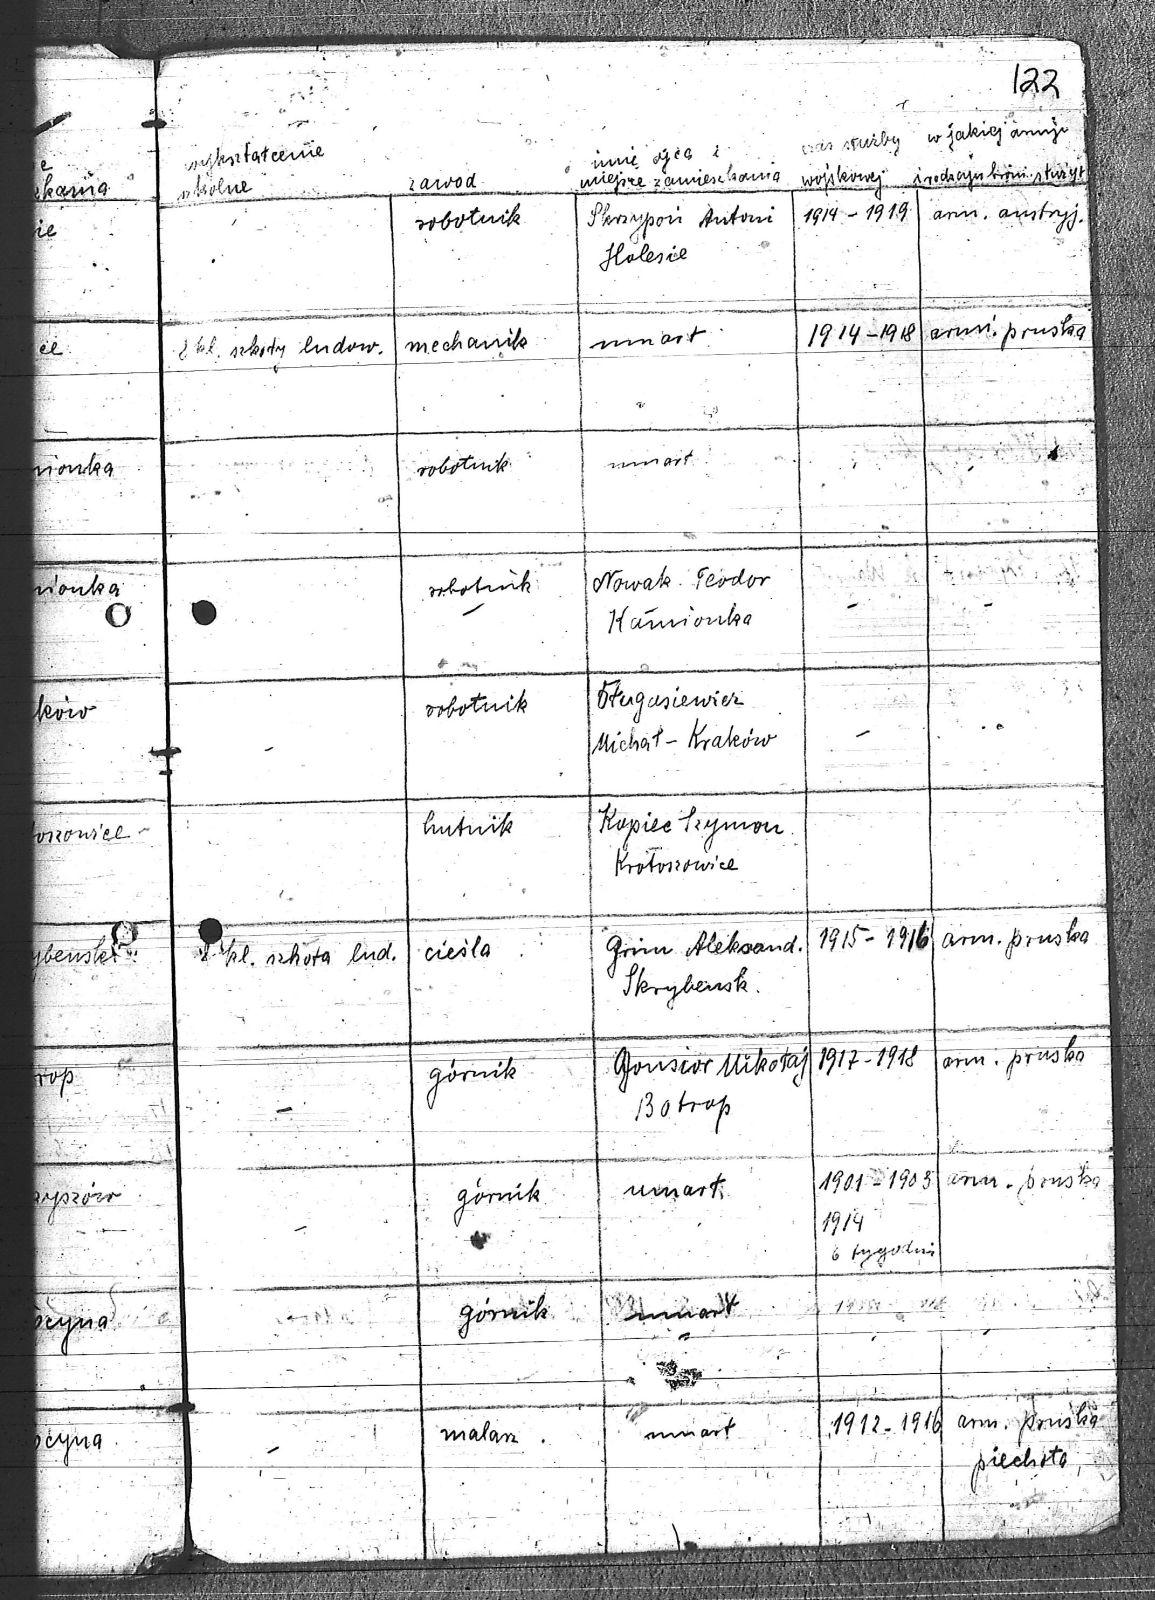 122
wykształcenie szkolne
zawod
imię ojca i miejsce zamieszkania
czas służby wojskowej
w jakiej armji i rodzaju broni służył
zkania
ie
robotnik
Skrzypoń Antoni
Halesie
1914 - 1919
arm. austryj.
ce
8 kl. szkoły ludow.
mechanik
umart
1914 - 1918
armi. pruska
mionka
robotnik
umart
mionka
robotnik
Nowak Teodor
Kamionka
ków
robotnik
Długasiewicz
Michał - Kraków
oszowice
hutnik
Kopiec Szymon
Krotoszowice
ybensk
8 kl. szkoła lud.
cieśla
Grim Aleksand.
Skrybensk.
1915 - 1916
arm. pruska
rop
górnik
Gonsior Mikołaj
Botrop
1917 - 1918
arm. pruska
zyszów
górnik
umart
1901 - 1903
1914
6 tygodni
arm. pruska
ocyna
górnik
umart
ocyna
malarz.
umart
1912 - 1916
arm. pruska
piechota